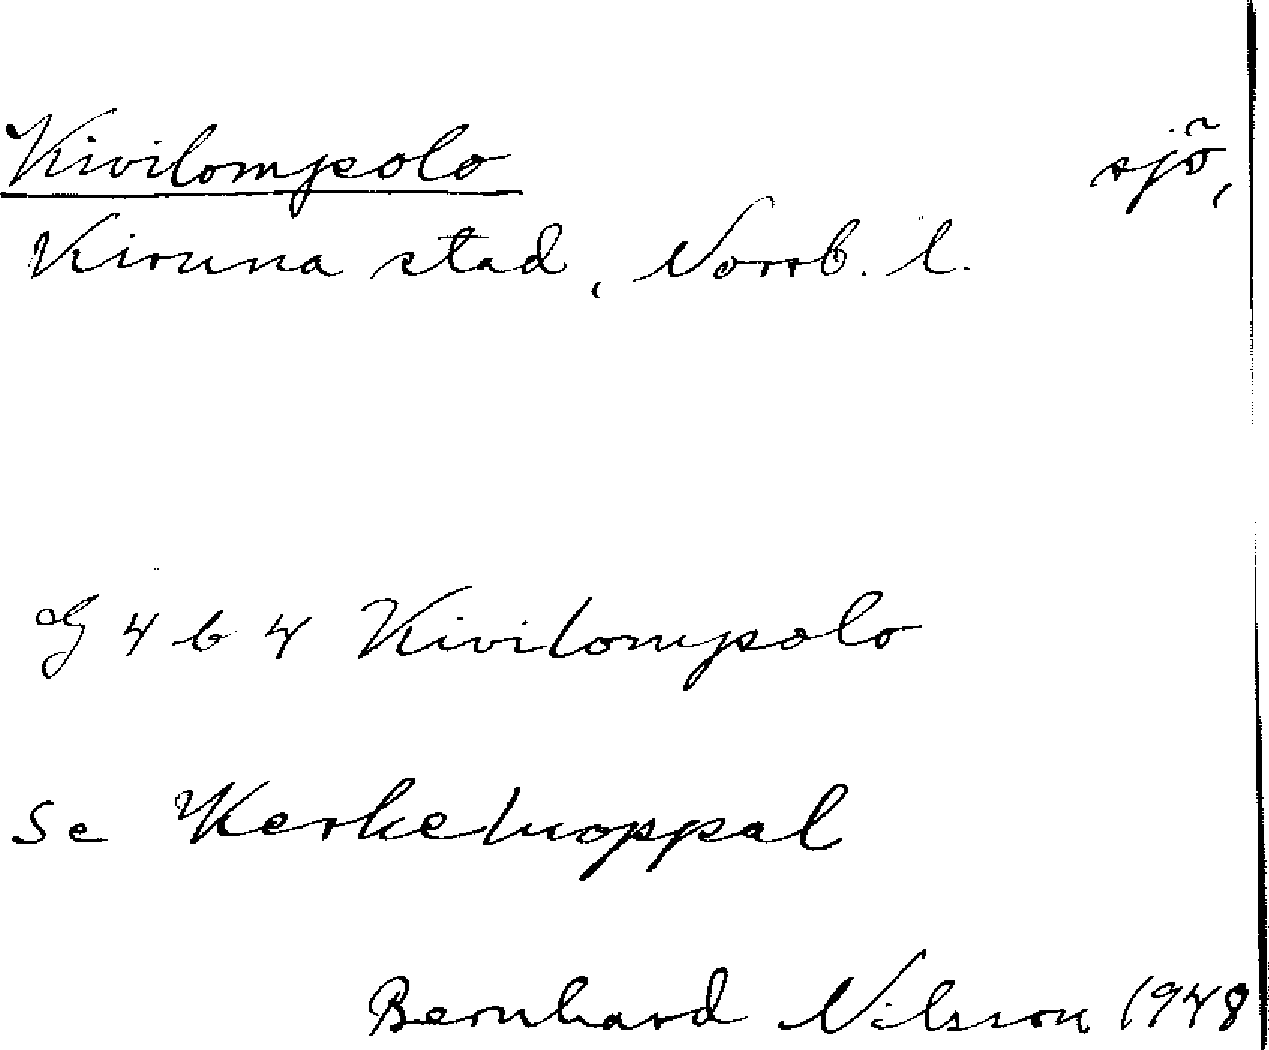 Kivilompolo sjö,
Kiruna stad, Norrb. l.
G 4 b 4 Kivilompolo
Se Kerkeluoppal
Bernhard Nilsson 1948